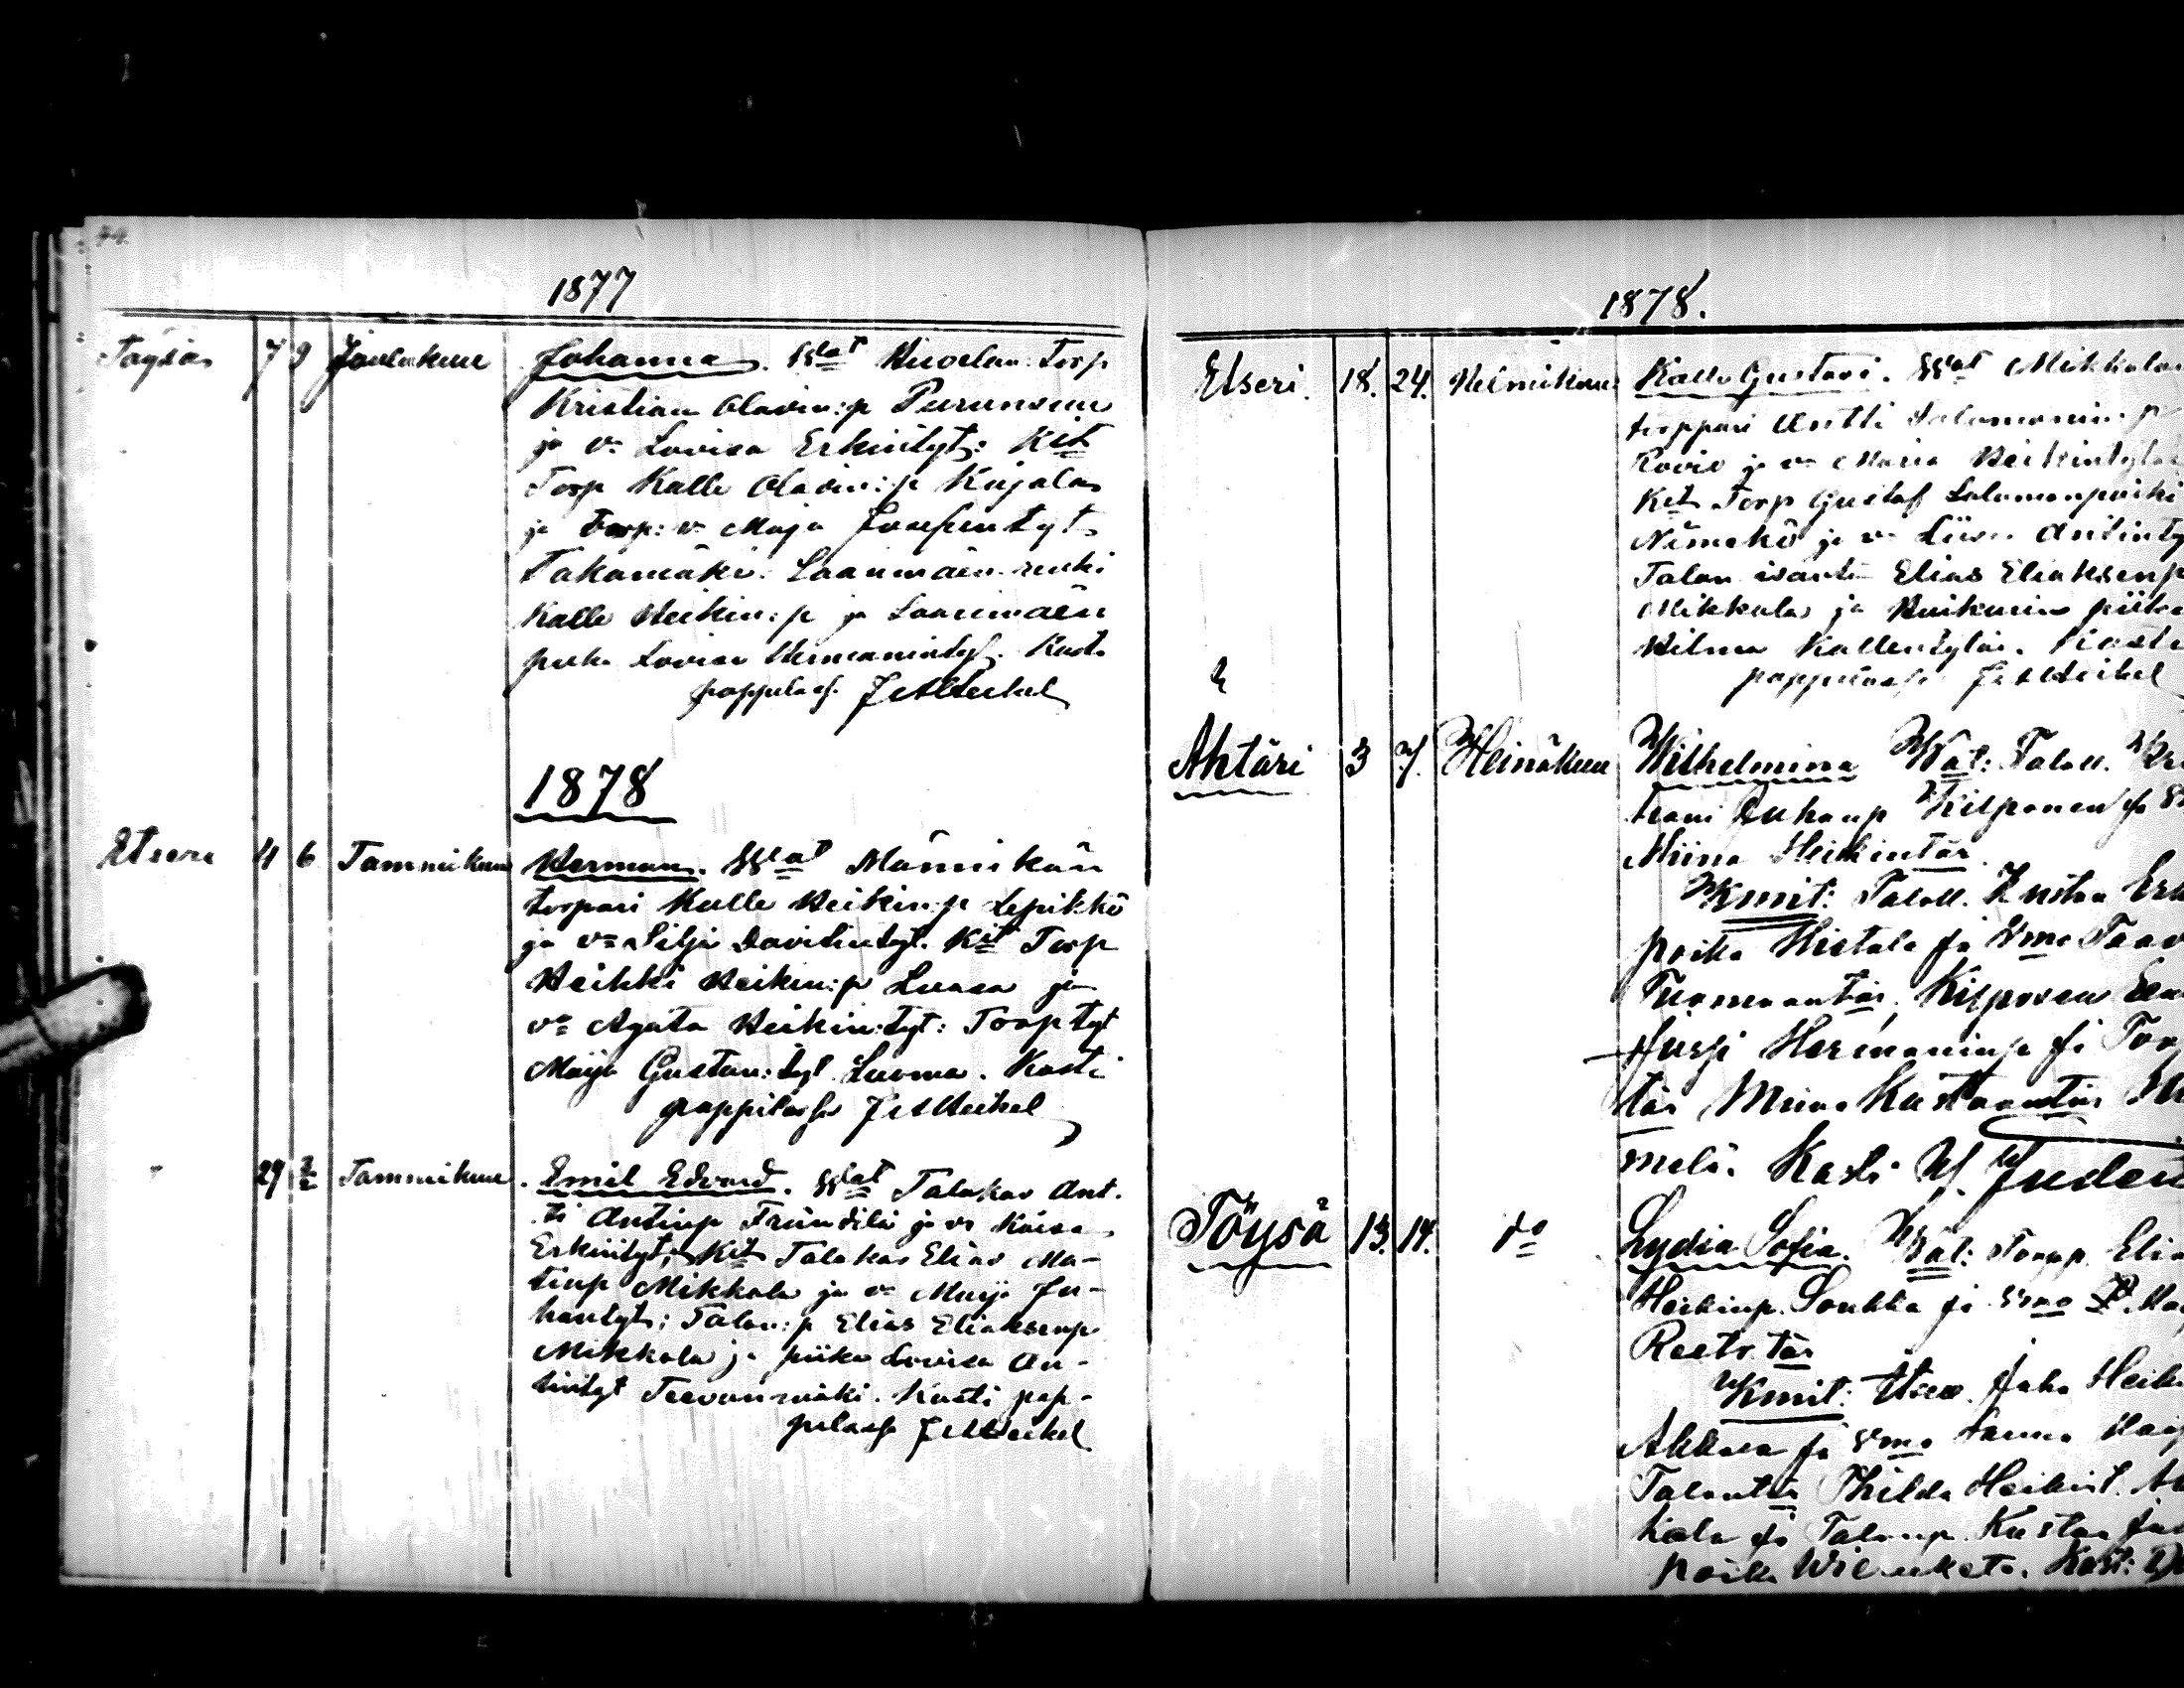 74.
1877
Töysä 7 9 Joulukuu Johanna. Wat Huoelan: Torp
Kristian Olavin:p Purunseun
ja v= Lovisa Erkintyt: Kit
Torp Kalle Olavin:p Kujalas
ja Torp: v. Maja Josefintyt
Takamäki. Laanmäen renki
Kalle Heikin:p ja Laanmäen
piika Lovisa Hermanintyt. Kasti
pappilass. J A Heikel
1878
Etseri 4 6 Tammikuu Herman. Wat Männikän
torpari Kalle Heikin:p Lepikkö
ja v= Silja Davidintyt. Kit Torp
Heikki Heikin:p Luoma ja
v= Agata Heikin:tyt: Torp tyt
Maija Gustav:tyt Luoma. Kasti
pappilassa J A Heikel
29 2/2 Tammikuu. Emil Edvard. Wat Talokas Ant-
ti Antinp Fründilä ja v= Kaisa
Erkintyt; Kit Talokas Elias Ma-
tinp Mikkola ja v= Maija Ju-
hantyt; Talon:p Elias Eliaksenp
Mikkola ja piika Lovisa An-
tintyt Teevanmäki. Kasti pap-
pilassa J A Heikel
1878.
Etseri. 18. 24. Helmikuu Kalle Gustavi. Wat Mikkolan
torppari Antti Salomonin p
Rovio ja v= Maria Heikintytär
Kit Torp Gustaf Salomonpoika
Nimekö ja v= Liisa Antinty
Talon isäntä Elias Eliaksenp
Mikkola ja Huikurin piika
Hilma Kallentytär. Kasti
pappilassa J A Heikel
Ähtäri 3 7. Heinäkuu Wilhelmina Wat: Taloll. Kri
tiani Juhanp Kilponen ja V
Miina Heikintär.
Kmit: Taloll. Kustaa Erk
poika Hietala ja Vmo Taav
Tuomaantär, Kilposen
Jussi Hermaninp ja Tor
tär Miina Kustaantär
melä. Kasti
Töysä 13. 14. do Lydia Sofia. Wat: Torpp. Elia
Heikinp. Soukka ja Vmo
Reetr.tär
Kmit: Juha Heik
ja Vmo Sanna Maij
Talontär Thilda Heikint.
kola ja Talonp. Kustaa Ju
poika Kast: